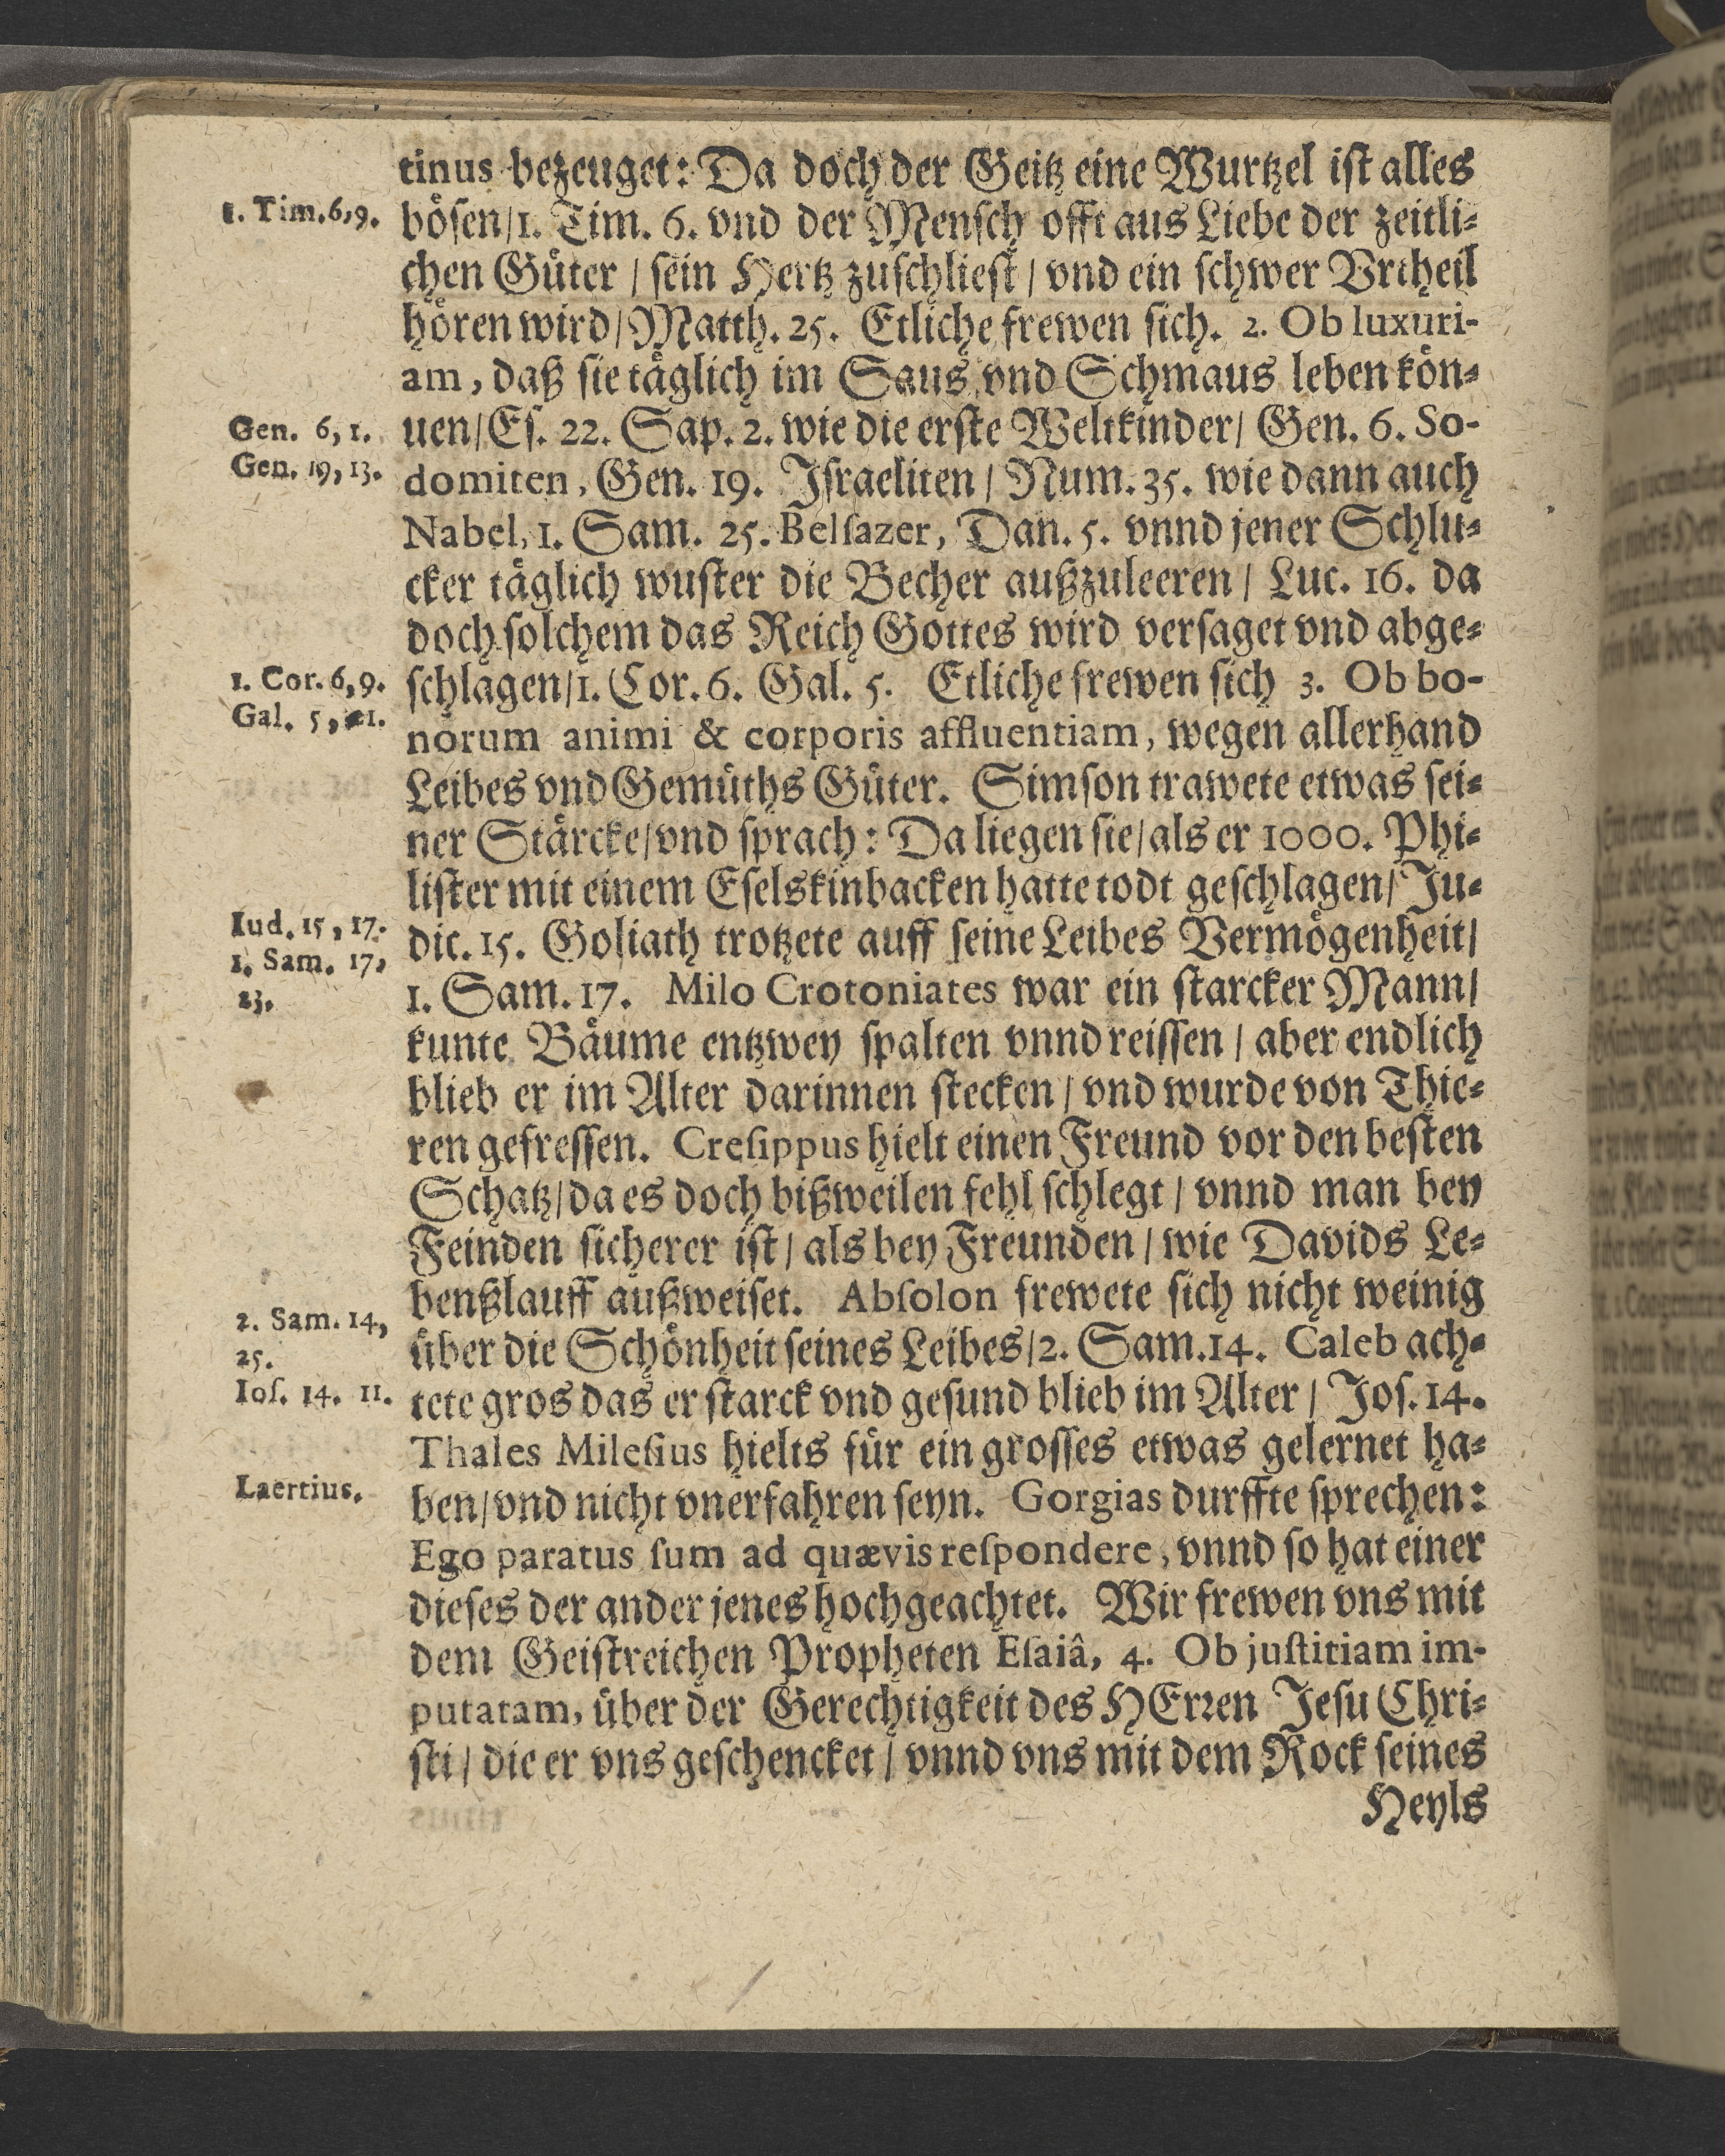 tinus bezeuget: Da doch der Geitz eine Wurtzel ist alles
1. Tim. 6, 9.
bösen/1. Tim. 6. vnd der Mensch offt aus Liebe der zeitli-
chen Güter / sein Hertz zuschliest / vnd ein schwer Vrtheil
hören wird/Matth. 25. Etliche frewen sich. 2. Ob luxuri-
am, daß sie täglich im Saus vnd Schmaus leben kön-
Gen. 6, 1.
uen/Es. 22. Sap. 2. wie die erste Weltkinder/ Gen. 6. So-
Gen. 19, 13.
domiten, Gen. 19. Israeliten / Num. 35. wie dann auch
Nabel, 1. Sam. 25. Belsazer, Dan. 5. vnnd jener Schlu-
cker täglich wuster die Becher außzuleeren / Luc. 16. da
doch solchem das Reich Gottes wird versaget vnd abge-
1. Cor. 6, 9.
schlagen/1. Cor. 6. Gal. 5. Etliche frewen sich 3. Ob bo-
Gal. 5, 21.
norum animi & corporis affluentiam, wegen allerhand
Leibes vnd Gemüths Güter. Simson trawete etwas sei-
ner Stärcke/vnd sprach: Da liegen sie/als er 1000. Phi-
lister mit einem Eselskinbacken hatte todt geschlagen/ Ju-
Iud. 15, 17.
dic. 15. Goliath trotzete auff seine Leibes Vermögenheit/
1. Sam. 17,
23.
1. Sam. 17. Milo Crotoniates war ein starcker Mann/
kunte Bäume entzwey spalten vnnd reissen / aber endlich
blieb er im Alter darinnen stecken / vnd wurde von Thie-
ren gefressen. Cresippus hielt einen Freund vor den besten
Schatz/da es doch bißweilen fehl schlegt / vnnd man bey
Feinden sicherer ist / als bey Freunden / wie Davids Le-
benßlauff außweiset. Absolon frewete sich nicht weinig
2. Sam. 14,
25.
über die Schönheit seines Leibes/2. Sam. 14. Caleb ach-
Ios. 14. 11.
tete gros das er starck vnd gesund blieb im Alter / Jos. 14.
Thales Milesius hielts für ein grosses etwas gelernet ha-
Laertius.
ben/vnd nicht vnerfahren seyn. Gorgias durffte sprechen:
Ego paratus sum ad quævis respondere, vnnd so hat einer
dieses der ander jenes hochgeachtet. Wir frewen vns mit
dem Geistreichen Propheten Esaiâ, 4. Ob justitiam im-
putatam, über der Gerechtigkeit des HErren Jesu Chri-
sti / die er vns geschencket / vnnd vns mit dem Rock seines
Heyls